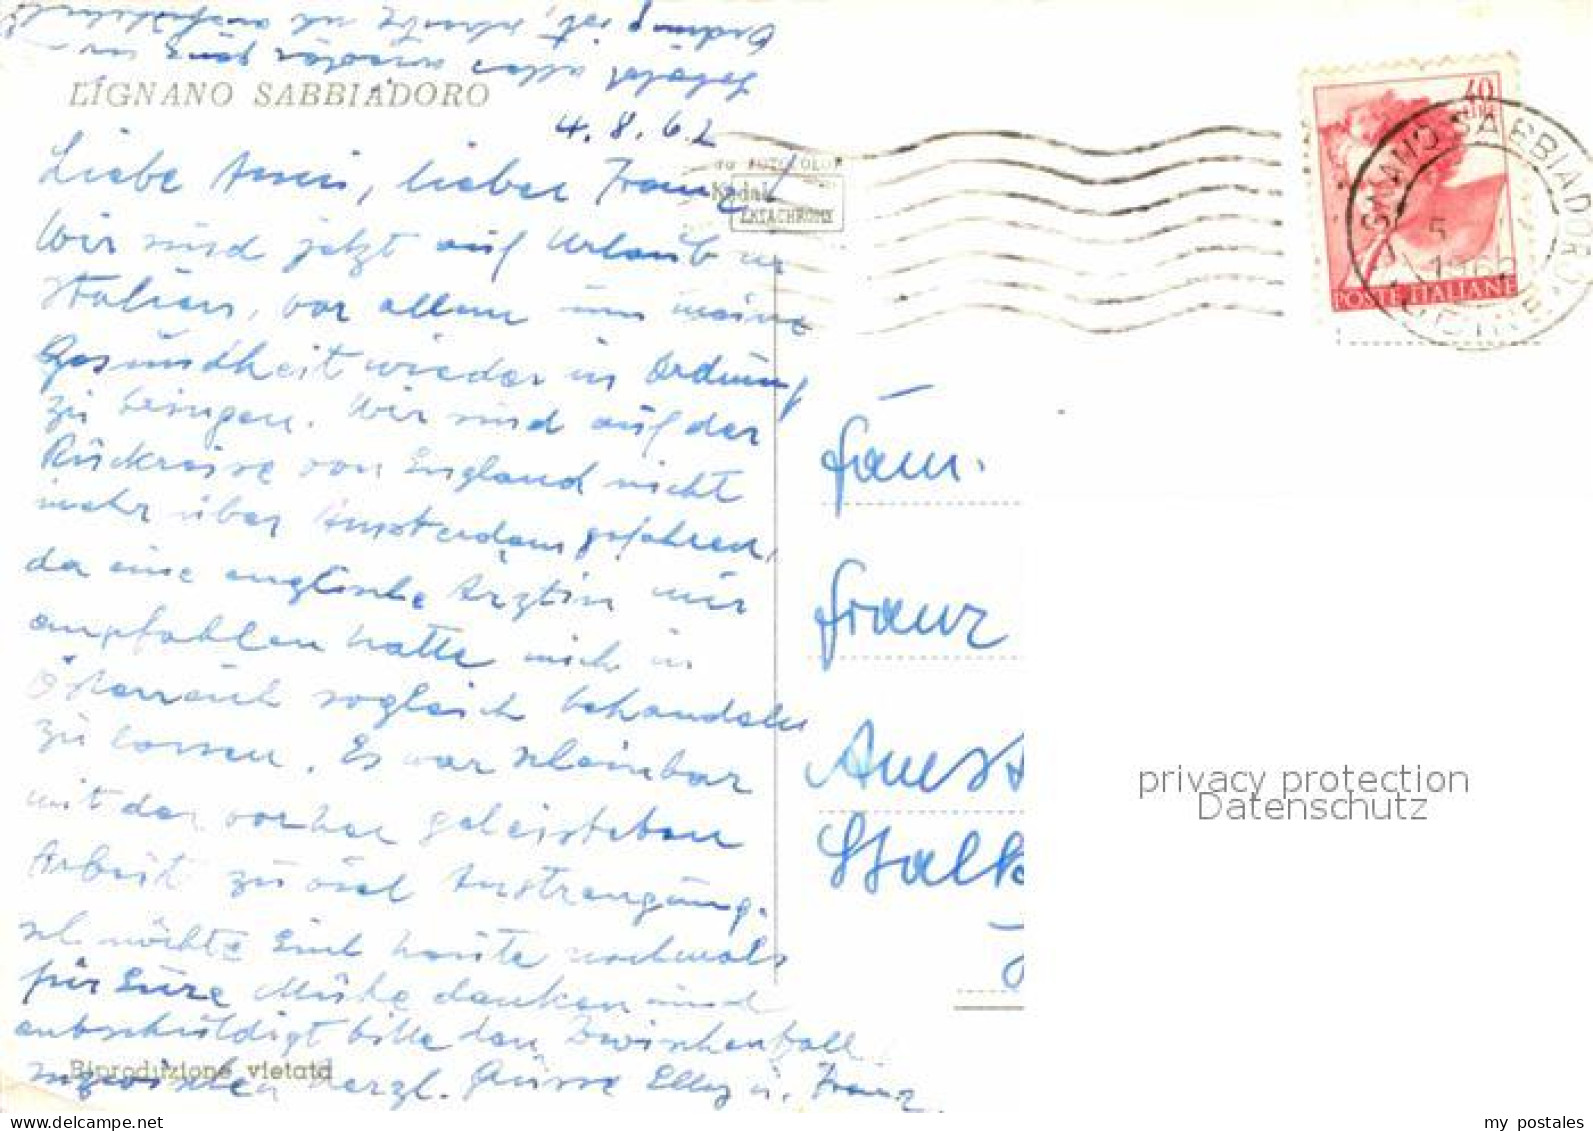 LIGNANO SABBIADORO
4.8.62
Liebe Anni, lieber Franz!
Wir sind jetzt auf Urlaub in
Italien, vor allem um meine
Gesundheit wieder in Ordnung
zu bringen. Wir sind auf der
Rückreise von England nicht
mehr über Amsterdam gefahren,
da eine englische Ärztin mir
empfohlen hatte mich in
Österreich sogleich behandeln
zu lassen. Es war scheinbar
mit der vorher geleisteten
Arbeit zu viel Anstrengung.
Ich möchte Euch heute nochmals
für Eure Mühe danken und
entschuldigt bitte den Zwischenfall
inzwischen herzl. Grüsse Elly u. Franz
Riproduzione vietata
FOTOCOLOR
Kodak
EKTACHROME
40
LIRE
POSTE ITALIANE
LIGNANO SABBIADORO
5
1962
UDINE
Fam.
Franz
Amst
privacy protection
Datenschutz
my postales